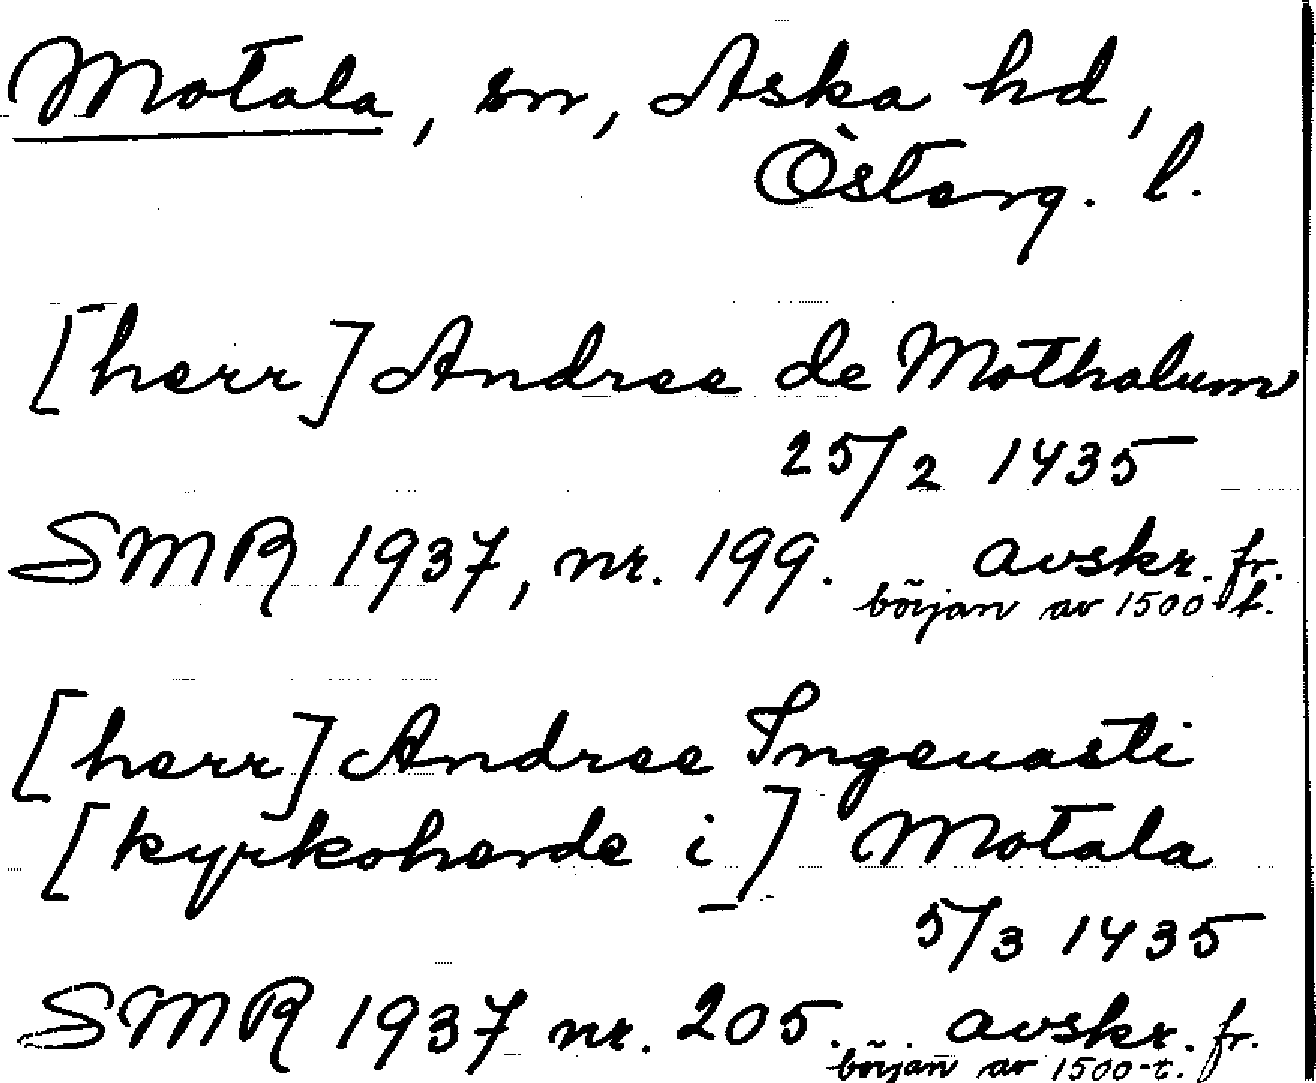 Motala, sn, Aska hd,
Österg. l.
[herr] Andree de Mothalum
25/2 1435
SMR 1937, nr. 199. avskr. fr.
början av 1500-t.
[herr] Andree Ingeuasti
[kyrkoherde i] Motala
5/3 1435
SMR 1937 nr. 205. avskr. fr.
början av 1500-t.